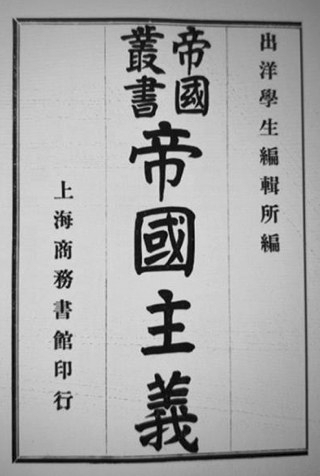 出洋學生編輯所編
帝國
叢書
帝國主義
上海商務書館印行